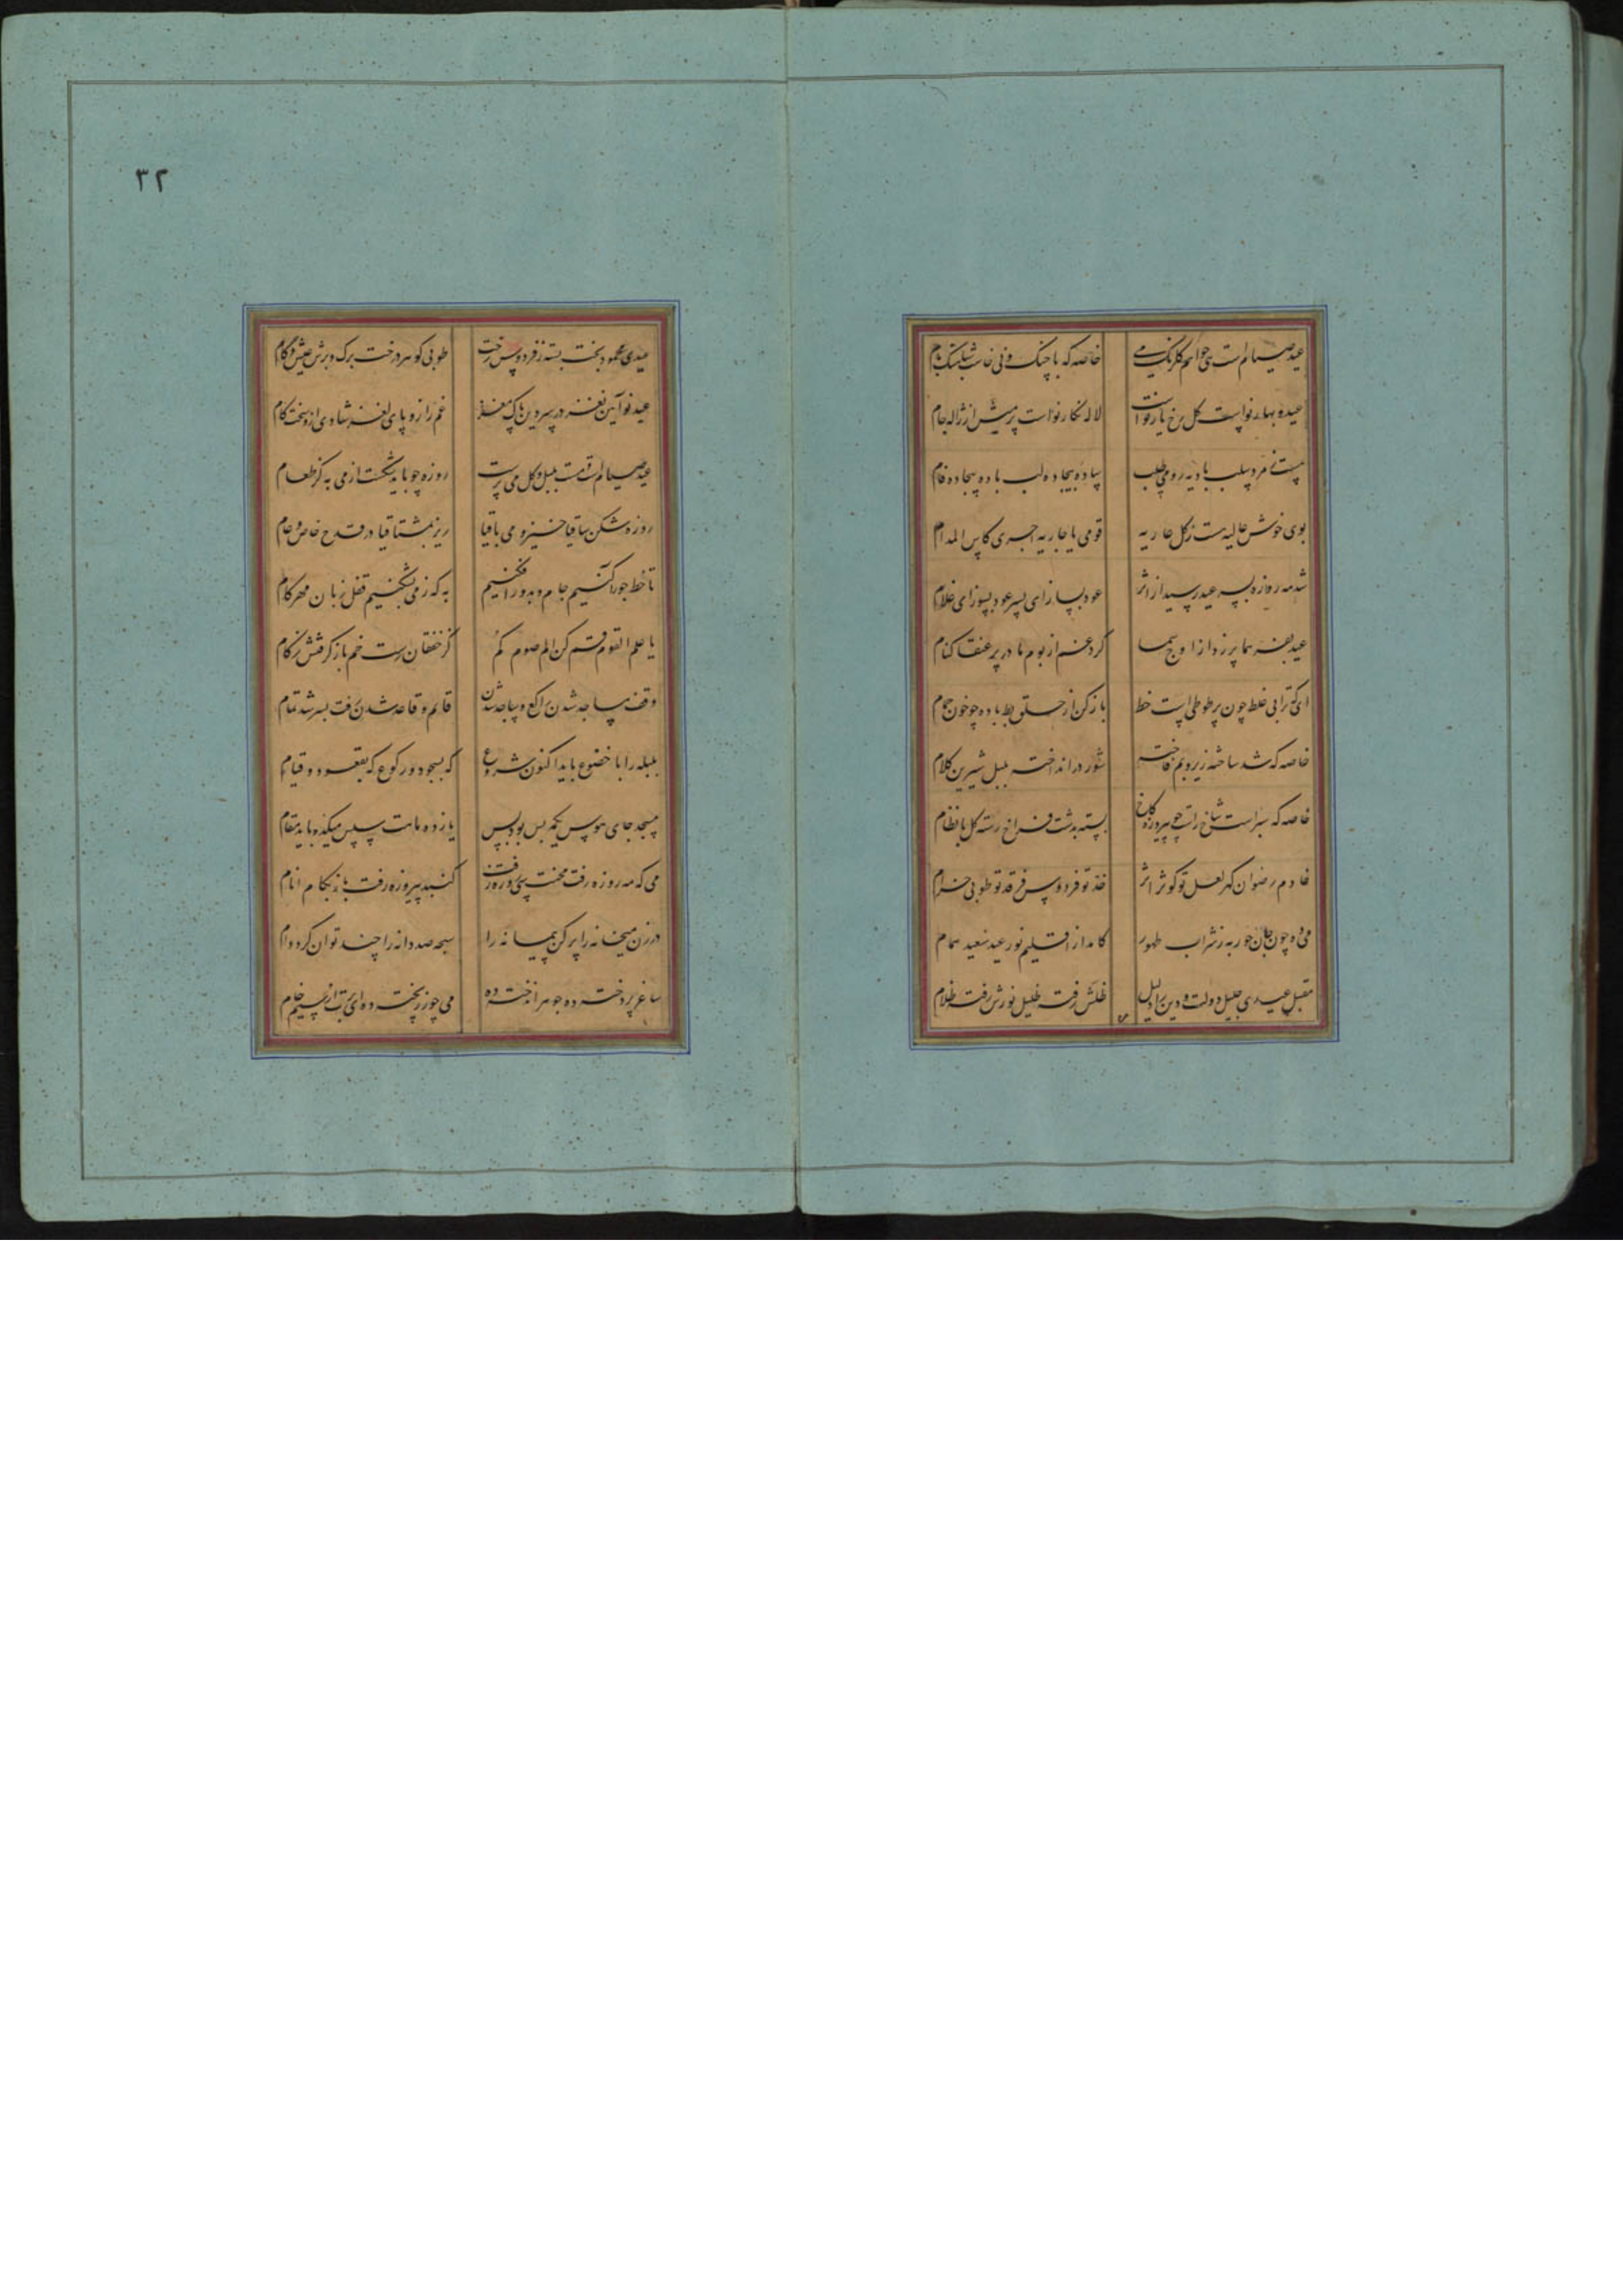 عید صیام است هی خواهم گلرنگ می خاصه که با چنگ و نی خاست شباهنگ بام
عید و بهار نو است گل رخ یار نو است لاله نگار نو است پر میش از ژاله جام
مست نی مرد سلب بادیه رو می طلب ساده بیجاده لب باده بیجاده فام
بوی خوش عالیه ست ز گل عاریه قومی یا جاریه اجری کاس المدام
شد مه روزه بسر عید رسید از اثر عود بساز ای پسر عود بسوز ای غلام
عید بفر هما پر زد از اوج سما کرد غم از بوم ما در پر عنقا کنام
ای که ترا بی غلط چون پر طوطی است خط باز کن از حلق بط باده چو خون حمام
خاصه که شد ساخته زیر و بم فاخته شور در انداخته بلبل شیرین کلام
خاصه که سبز است شاخ راست چو پیروزه کاخ بسته بدشت فراخ رسته گل با نظام
خادم رضوان گهر لعل تو کوثر اثر خد تو فردوس فر قد تو طوبی خرام
می ده چون جان حور به ز شراب طهور کامد از اقلیم نور عید سعید همام
مقبل عیدی جلیل دولت و دین را دلیل ظلش رفت ظلیل نورش رفت ظلام
۳۲
عیدی محمود بخت بسته ز فردوس رخت طوبی گوهر درخت برگ و برش عیش و کام
عید نو آیین نغز در سر دین پاک مغز غم را زو پای لغز شادی ازو پخت کام
عید صیام است مست بلبل و گل می پرست روزه چو باید شکست از می به کز طعام
روزه شکن ساقیا خیز و می باقیا ریز بمشتاقیا در قدح خاص و عام
تا خط جور آکنیم جام و بدور افکنیم به که ز می بشکنیم قفل زبان مهر کام
یا علم القوم قم کن الم صوم گم کز خفقان رست خم باز گرفتش زکام
وقف مساجد شدن راکع و ساجد شدن قائم و قاعد شدن رفت بسر شد تمام
بلبله را با خضوع باید اکنون شروع که بسجود و رکوع که بقعود و قیام
مسجد جای هوس یکمه بس بود بس یازده ماهت سپس میکده باید مقام
می که مه روزه رفت محنت سی روزه رفت گنبد پیروزه رفت باز بکام انام
در زن میخانه را پر کن پیمانه را سبحه صد دانه را چند توان کرد دام
ساغر پرداخته ده جوهر انداخته ده می چو زر پخته ده وای بت از سیم خام